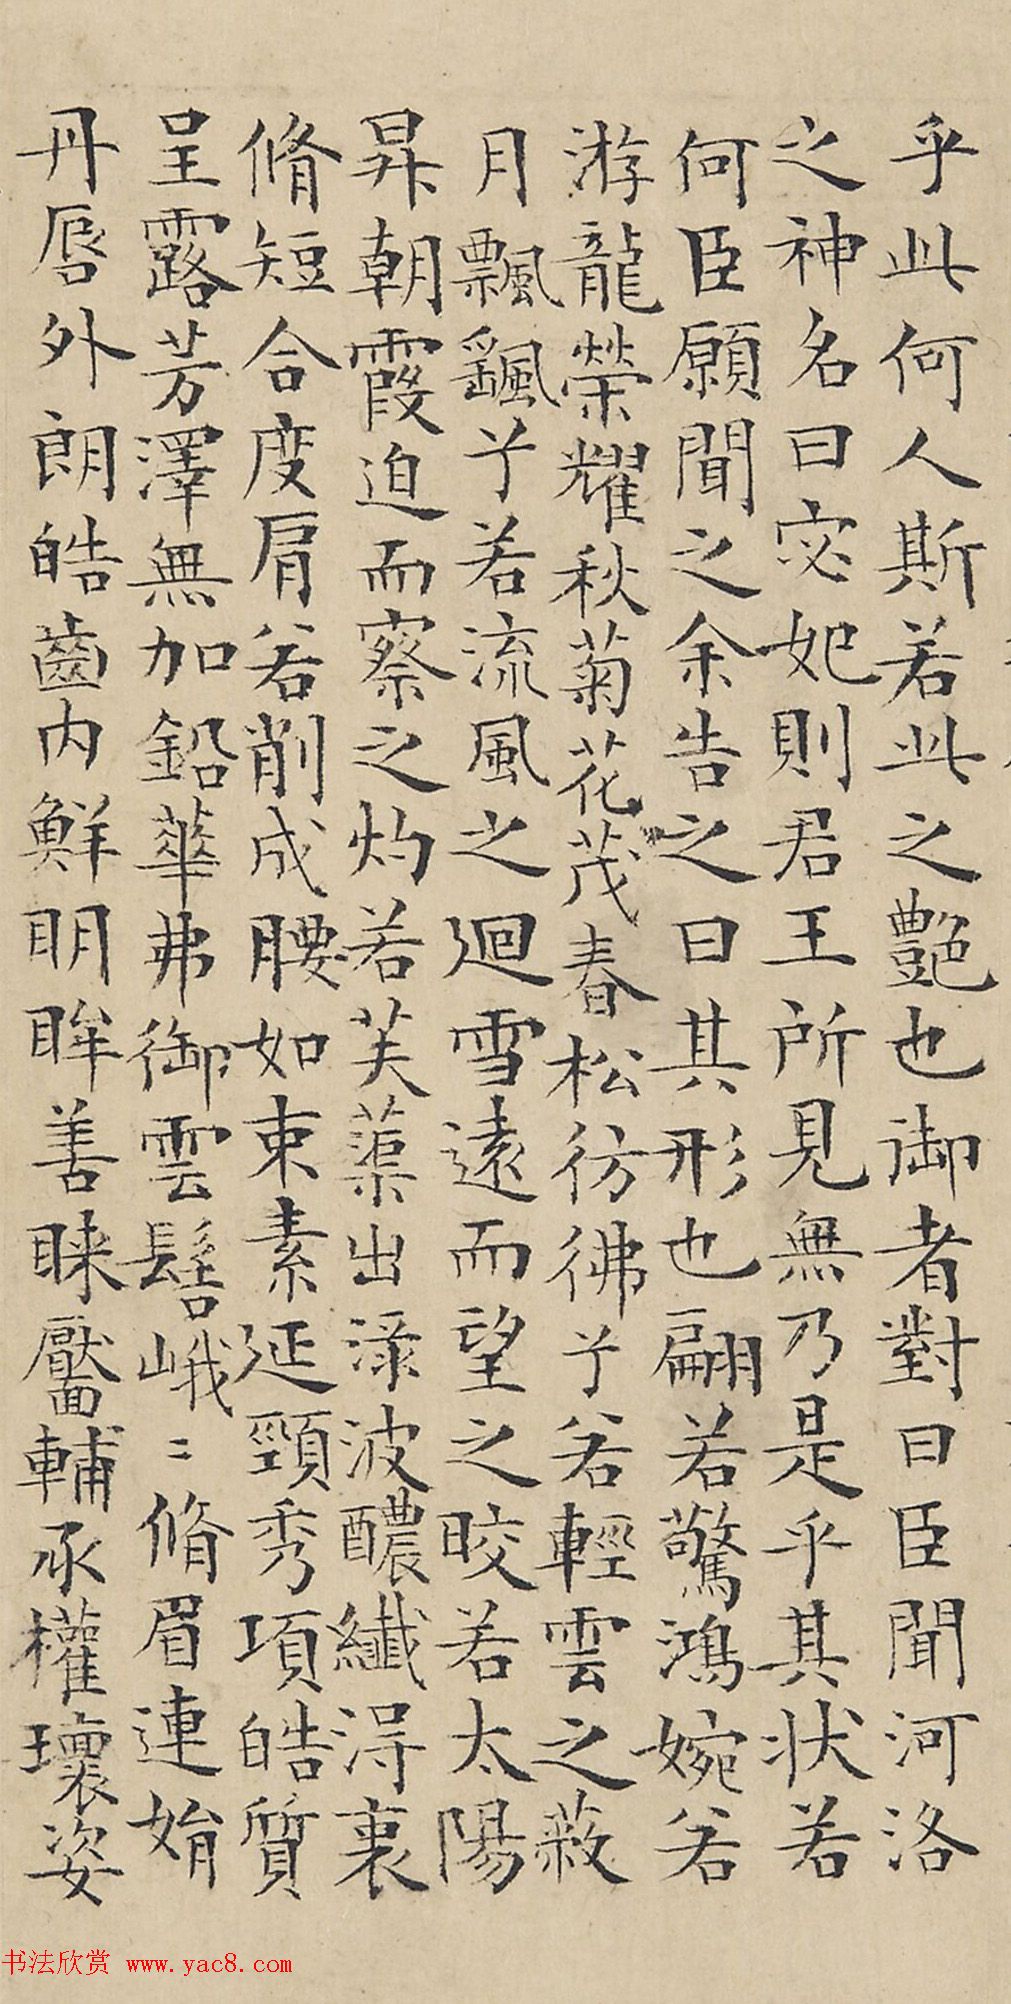 乎此何人斯若此之艷也御者對曰臣聞河洛
之神名曰宓妃則君王所見無乃是乎其状若
何臣願聞之余告之曰其形也翩若驚鴻婉若
游龍榮耀秋菊花茂春松彷彿兮若輕雲之蔽
月飄颻兮若流風之迴雪遠而望之皎若太陽
昇朝霞迫而察之灼若芙蕖出渌波醲纖得衷
脩短合度肩若削成腰如束素延頸秀項皓質
呈露芳澤無加鉛華弗御雲髻峨〻脩眉連娟
丹唇外朗皓齒内鮮明眸善睐靨輔承權瓌姿
书法欣赏 www.yac8.com